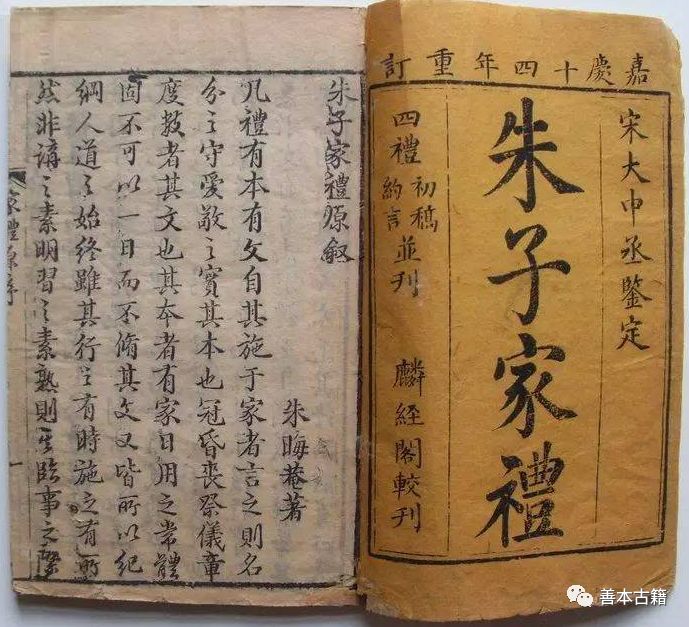 嘉慶十四年重訂
宋大中丞鑒定
朱子家禮
四禮初稿約言並刊
麟經閣較刊
朱子家禮原敘
朱晦菴著
凡禮有本有文自其施于家者言之則名
分之守愛敬之實其本也冠昏喪祭儀章
度數者其文也其本者有家日用之常體
固不可以一日而不脩其文又皆所以紀
綱人道之始終雖其行之有時施之有所
然非講之素明習之素熟則其臨事之際
家禮原序
一
善本古籍